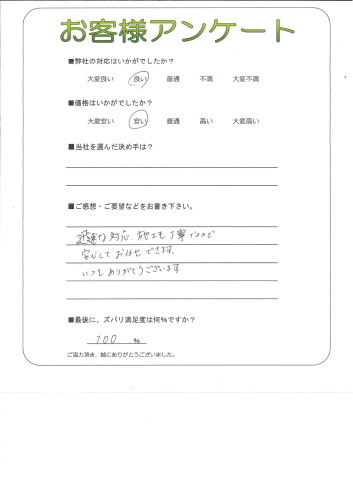 お客様アンケート
■弊社の対応はいかがでしたか？
大変良い 良い 普通 不満 大変不満
■価格はいかがでしたか？
大変安い 安い 普通 高い 大変高い
■当社を選んだ決め手は？
■ご感想・ご要望などをお書き下さい。
迅速な対応、施工も丁寧なので
安心してお任せできます。
いつもありがとうございます
■最後に、ズバリ満足度は何%ですか？
100 %
ご協力頂き、誠にありがとうございました。